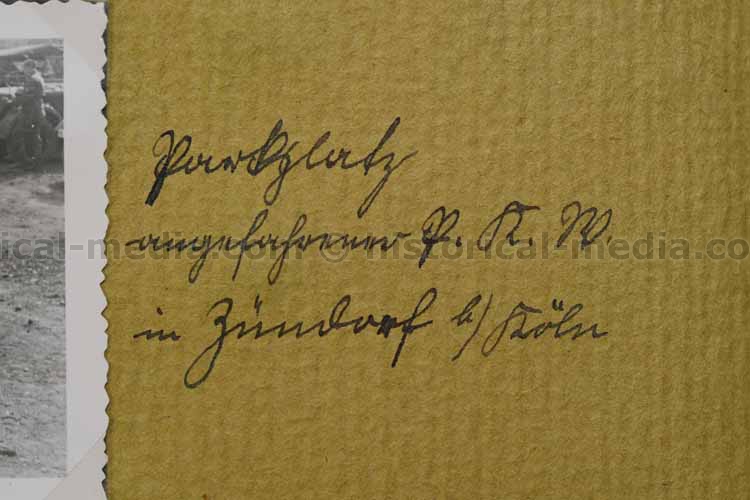 Parkplatz
angefahrener P. K. W.
in Zündorf b/Köln
ical-media.com © historical-media.co